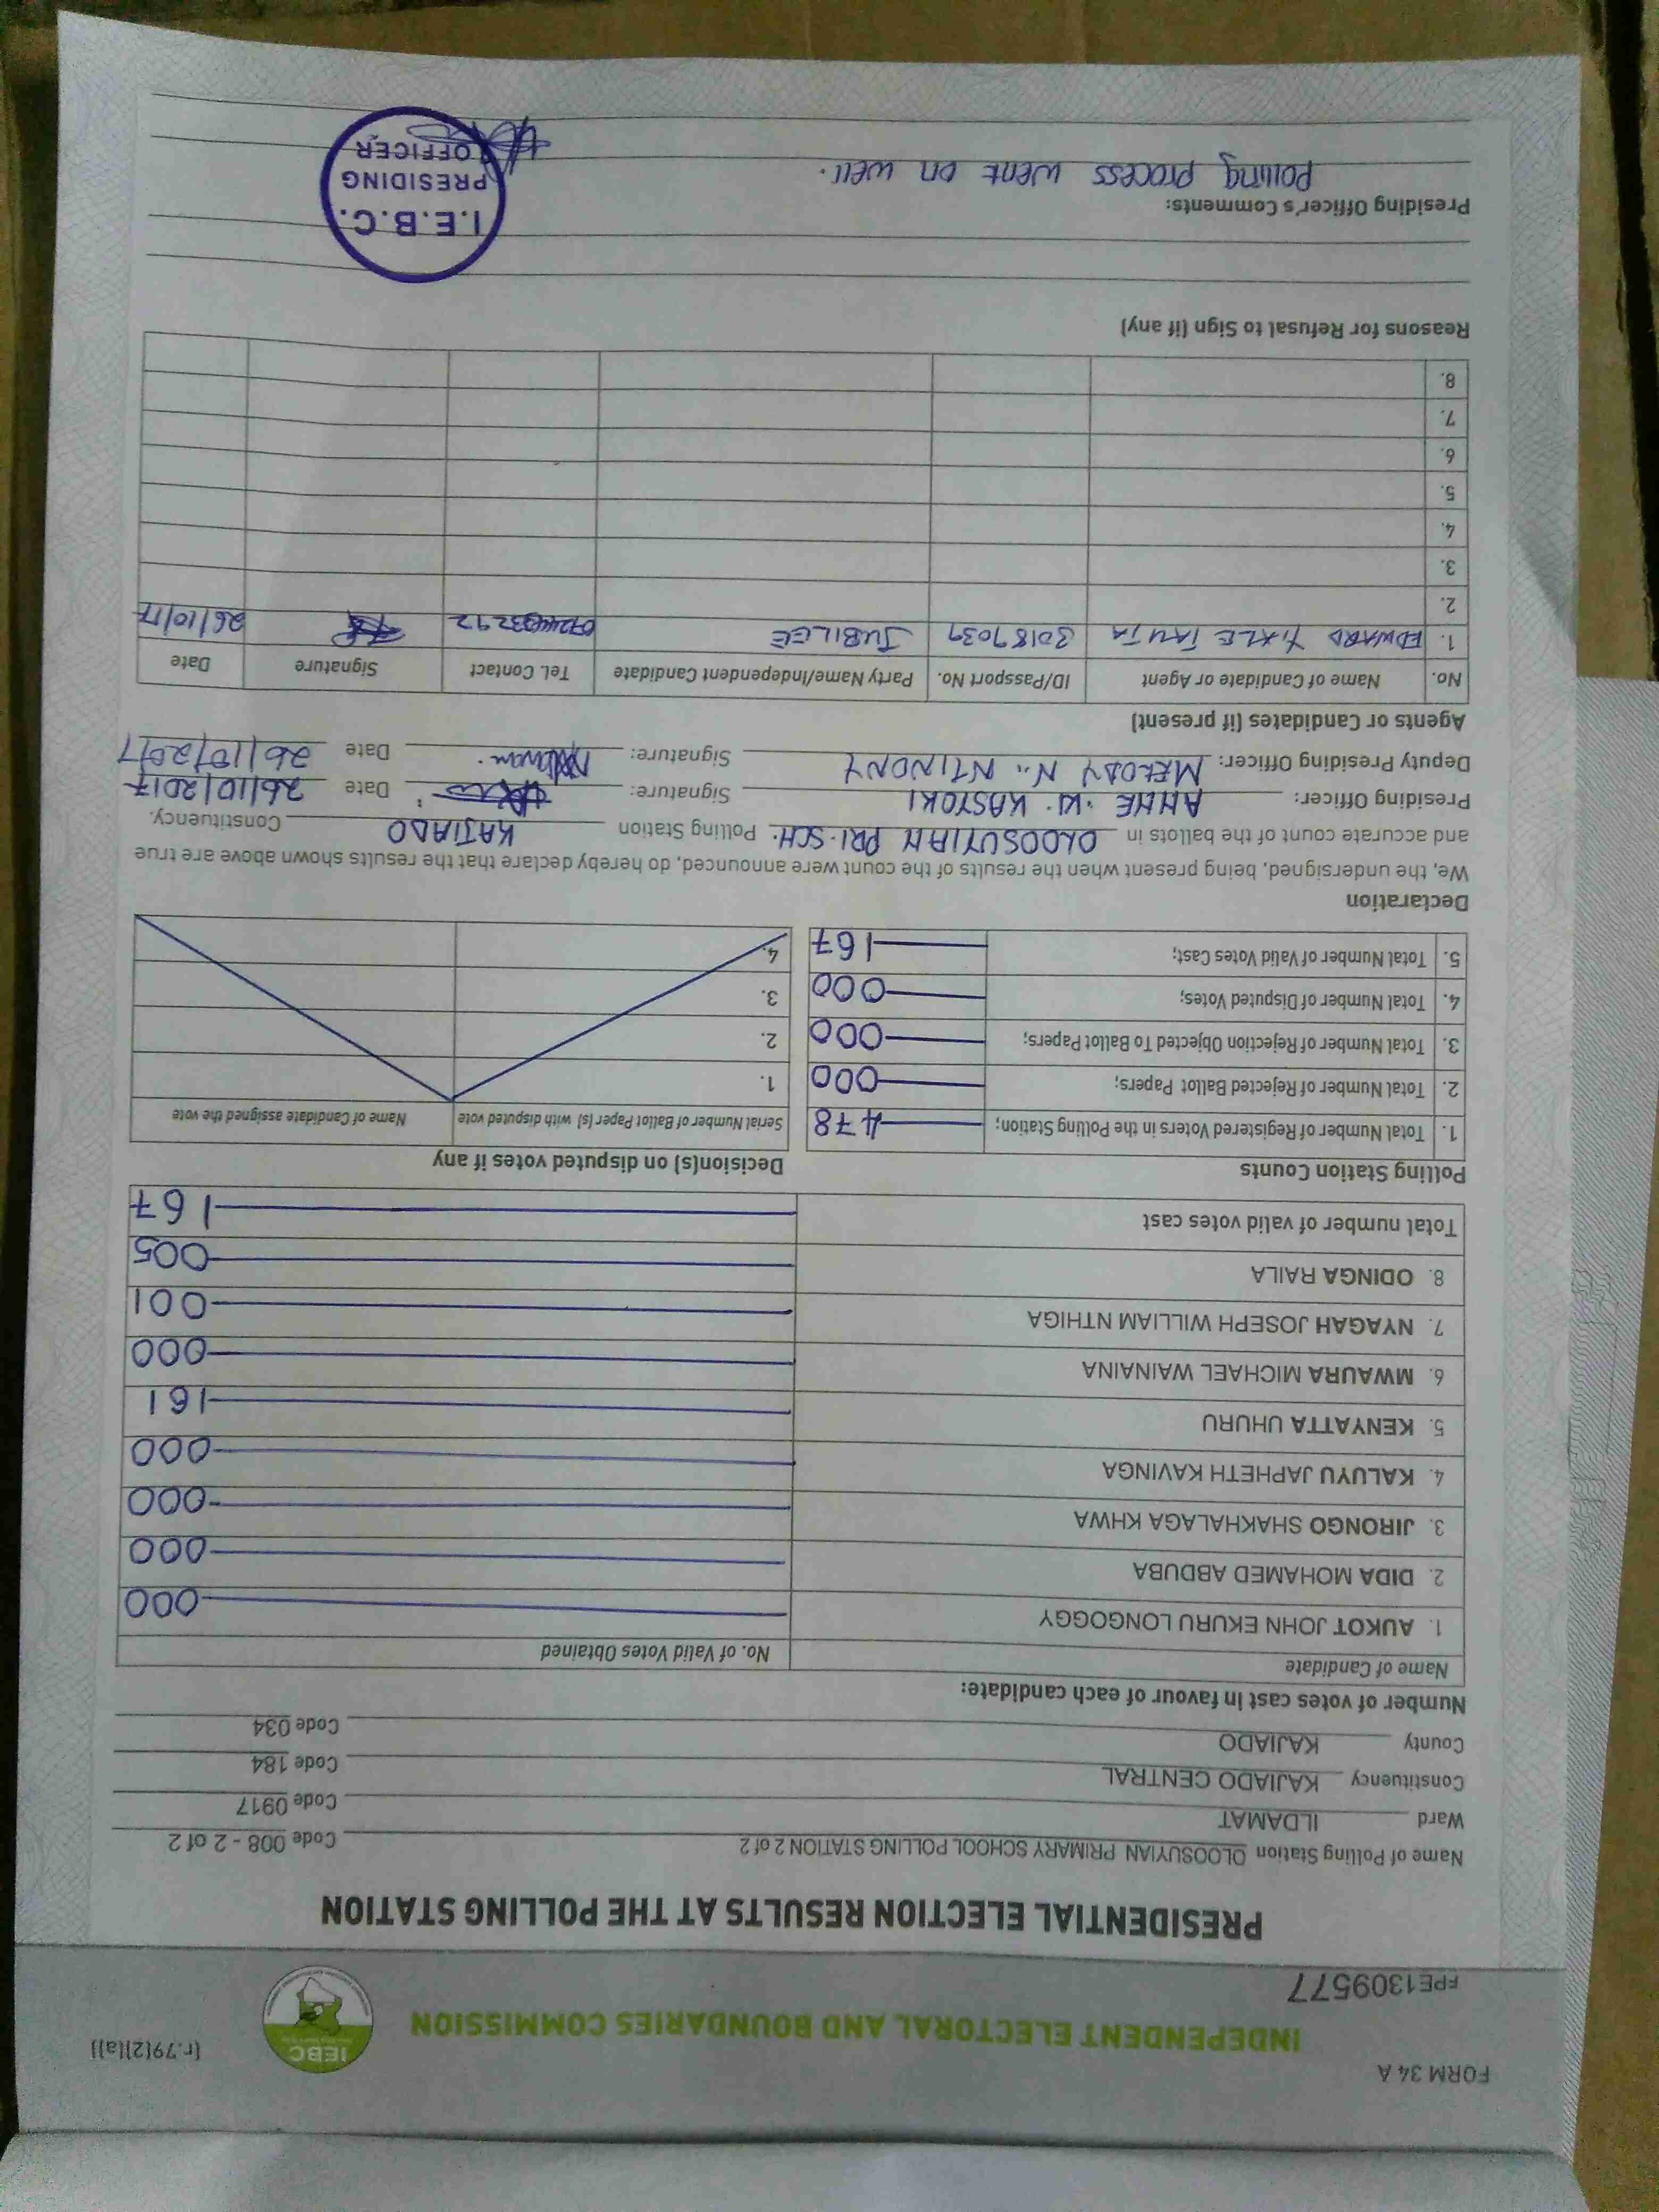 FORM 34 A
(r.79(2)(a))
INDEPENDENT ELECTORAL AND BOUNDARIES COMMISSION
IEBC
FPE1309577
PRESIDENTIAL ELECTION RESULTS AT THE POLLING STATION
Name of Polling Station OLOOSUYIAN PRIMARY SCHOOL POLLING STATION 2 of 2 Code 008 - 2 of 2
Ward ILDAMAT Code 0917
Constituency KAJIADO CENTRAL Code 184
County KAJIADO Code 034
Number of votes cast in favour of each candidate:
Name of Candidate No. of Valid Votes Obtained
1. AUKOT JOHN EKURU LONGOGGY 000
2. DIDA MOHAMED ABDUBA 000
3. JIRONGO SHAKHALAGA KHWA 000
4. KALUYU JAPHETH KAVINGA 000
5. KENYATTA UHURU 161
6. MWAURA MICHAEL WAINAINA 000
7. NYAGAH JOSEPH WILLIAM NTHIGA 001
8. ODINGA RAILA 005
Total number of valid votes cast 167
Polling Station Counts
1. Total Number of Registered Voters in the Polling Station; 478
2. Total Number of Rejected Ballot Papers; 000
3. Total Number of Rejection Objected To Ballot Papers; 000
4. Total Number of Disputed Votes; 000
5. Total Number of Valid Votes Cast; 167
Decision(s) on disputed votes if any
Serial Number of Ballot Paper (s) with disputed vote Name of Candidate assigned the vote
1.
2.
3.
4.
Declaration
We, the undersigned, being present when the results of the count were announced, do hereby declare that the results shown above are true
and accurate count of the ballots in OLOOSUYIAN PRI. SCH. Polling Station KAJIADO Constituency.
Presiding Officer: ANNE .K. KASYOKI Signature: Date 26/10/2017
Deputy Presiding Officer: MELODY N. NTINONY Signature: Date 26/10/2017
Agents or Candidates (if present)
No. Name of Candidate or Agent ID/Passport No. Party Name/Independent Candidate Tel. Contact Signature Date
1. EDWARD 30187039 JUBILEE 26/10/17
2.
3.
4.
5.
6.
7.
8.
Reasons for Refusal to Sign (if any)
Presiding Officer's Comments:
Polling process went on well.
I.E.B.C.
PRESIDING
OFFICER